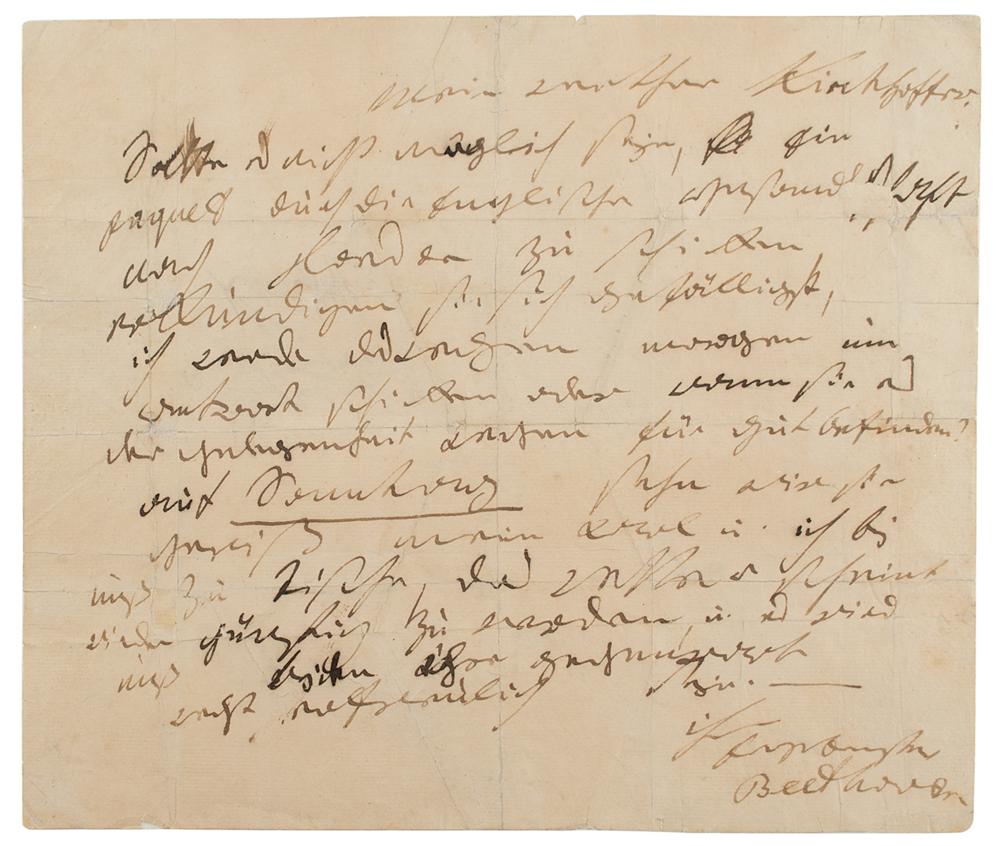 mein werther Kirchhoffer.
Sollte es nicht möglich seyn, ein
paquet durch die englische Gesand
nach London zu schicken
erkundigen sie sich gefälligst,
ich werde deswegen morgen um
antwort schicken oder wann sie es
der gelegenheit wegen für gut befinden?
auf Sonntag sehn wir sie
gewiß mein Karl u. ich bey
mir zu Tische, das wetter scheint
wieder günstig zu werden, u. es wird
mir Ihre gegenwart
recht erfreulich seyn. —
ihr Ergebenster
Beethoven